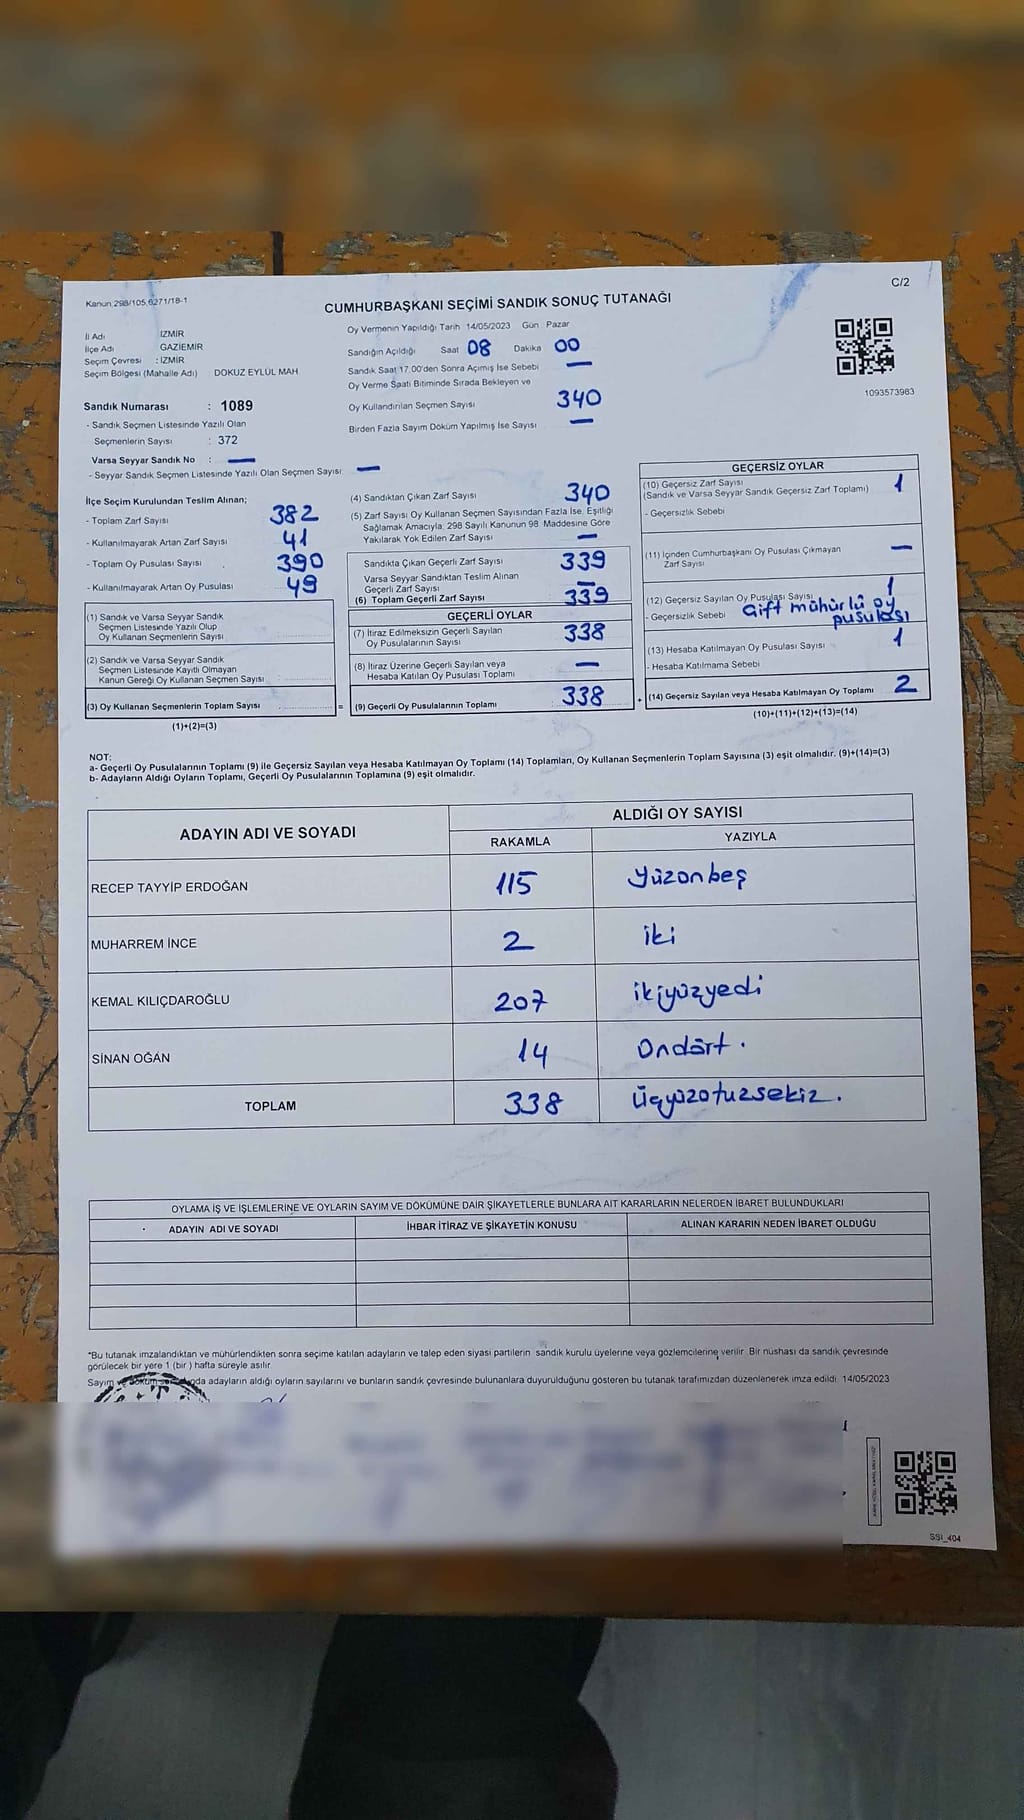 Kanun 298/105,6271/18-1
C/2
CUMHURBAŞKANI SEÇİMİ SANDIK SONUÇ TUTANAĞI
İl Adı İZMİR
İlçe Adı GAZİEMİR
Seçim Çevresi : İZMİR
Seçim Bölgesi (Mahalle Adı) DOKUZ EYLÜL MAH
Oy Vermenin Yapıldığı Tarih 14/05/2023 Gün Pazar
Sandığın Açıldığı Saat 08 Dakika 00
Sandık Saat 17.00'den Sonra Açımış İse Sebebi —
Oy Verme Saati Bitiminde Sırada Bekleyen ve
Oy Kullandırılan Seçmen Sayısı 340
Birden Fazla Sayım Döküm Yapılmış İse Sayısı —
1093573983
Sandık Numarası : 1089
- Sandık Seçmen Listesinde Yazılı Olan
Seçmenlerin Sayısı : 372
Varsa Seyyar Sandık No : —
- Seyyar Sandık Seçmen Listesinde Yazılı Olan Seçmen Sayısı: —
İlçe Seçim Kurulundan Teslim Alınan;
- Toplam Zarf Sayısı 382
- Kullanılmayarak Artan Zarf Sayısı 41
- Toplam Oy Pusulası Sayısı 390
- Kullanılmayarak Artan Oy Pusulası 49
(1) Sandık ve Varsa Seyyar Sandık
Seçmen Listesinde Yazılı Olup
Oy Kullanan Seçmenlerin Sayısı
(2) Sandık ve Varsa Seyyar Sandık
Seçmen Listesinde Kayıtlı Olmayan
Kanun Gereği Oy Kullanan Seçmen Sayısı
(3) Oy Kullanan Seçmenlerin Toplam Sayısı =
(1)+(2)=(3)
(4) Sandıktan Çıkan Zarf Sayısı 340
(5) Zarf Sayısı Oy Kullanan Seçmen Sayısından Fazla İse, Eşitliği
Sağlamak Amacıyla; 298 Sayılı Kanunun 98. Maddesine Göre
Yakılarak Yok Edilen Zarf Sayısı —
Sandıkta Çıkan Geçerli Zarf Sayısı 339
Varsa Seyyar Sandıktan Teslim Alınan
Geçerli Zarf Sayısı —
(6) Toplam Geçerli Zarf Sayısı 339
GEÇERLİ OYLAR
(7) İtiraz Edilmeksizin Geçerli Sayılan
Oy Pusulalarının Sayısı 338
(8) İtiraz Üzerine Geçerli Sayılan veya
Hesaba Katılan Oy Pusulası Toplamı —
(9) Geçerli Oy Pusulalarının Toplamı 338 +
GEÇERSİZ OYLAR
(10) Geçersiz Zarf Sayısı 1
(Sandık ve Varsa Seyyar Sandık Geçersiz Zarf Toplamı)
- Geçersizlik Sebebi
(11) İçinden Cumhurbaşkanı Oy Pusulası Çıkmayan —
Zarf Sayısı
(12) Geçersiz Sayılan Oy Pusulası Sayısı 1
- Geçersizlik Sebebi Çift mühürlü oy
pusulası
(13) Hesaba Katılmayan Oy Pusulası Sayısı 1
- Hesaba Katılmama Sebebi
(14) Geçersiz Sayılan veya Hesaba Katılmayan Oy Toplamı 2
(10)+(11)+(12)+(13)=(14)
NOT:
a- Geçerli Oy Pusulalarının Toplamı (9) ile Geçersiz Sayılan veya Hesaba Katılmayan Oy Toplamı (14) Toplamları, Oy Kullanan Seçmenlerin Toplam Sayısına (3) eşit olmalıdır. (9)+(14)=(3)
b- Adayların Aldığı Oyların Toplamı, Geçerli Oy Pusulalarının Toplamına (9) eşit olmalıdır.
ADAYIN ADI VE SOYADI ALDIĞI OY SAYISI
RAKAMLA YAZIYLA
RECEP TAYYİP ERDOĞAN 115 Yüzonbeş
MUHARREM İNCE 2 iki
KEMAL KILIÇDAROĞLU 207 ikiyüzyedi
SİNAN OĞAN 14 Ondört.
TOPLAM 338 Üçyüzotuzsekiz.
OYLAMA İŞ VE İŞLEMLERİNE VE OYLARIN SAYIM VE DÖKÜMÜNE DAİR ŞİKAYETLERLE BUNLARA AİT KARARLARIN NELERDEN İBARET BULUNDUKLARI
ADAYIN ADI VE SOYADI İHBAR İTİRAZ VE ŞİKAYETİN KONUSU ALINAN KARARIN NEDEN İBARET OLDUĞU
*Bu tutanak imzalandıktan ve mühürlendikten sonra seçime katılan adayların ve talep eden siyasi partilerin sandık kurulu üyelerine veya gözlemcilerine verilir. Bir nüshası da sandık çevresinde
görülecek bir yere 1 (bir) hafta süreyle asılır.
Sayım ve döküm adayların aldığı oyların sayılarını ve bunların sandık çevresinde bulunanlara duyurulduğunu gösteren bu tutanak tarafımızdan düzenlenerek imza edildi. 14/05/2023
SSI_404